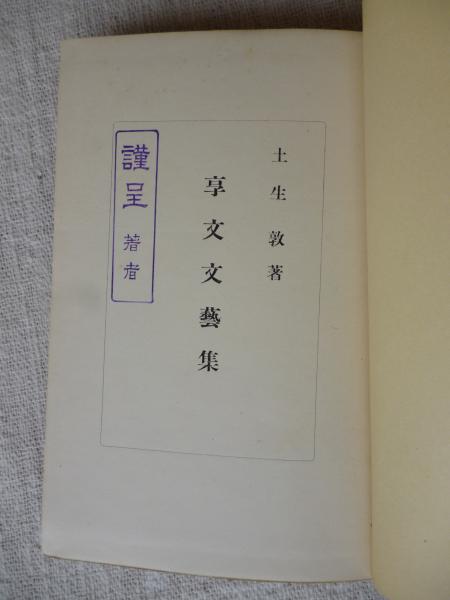 土生敦著
享文文藝集
謹呈 著者